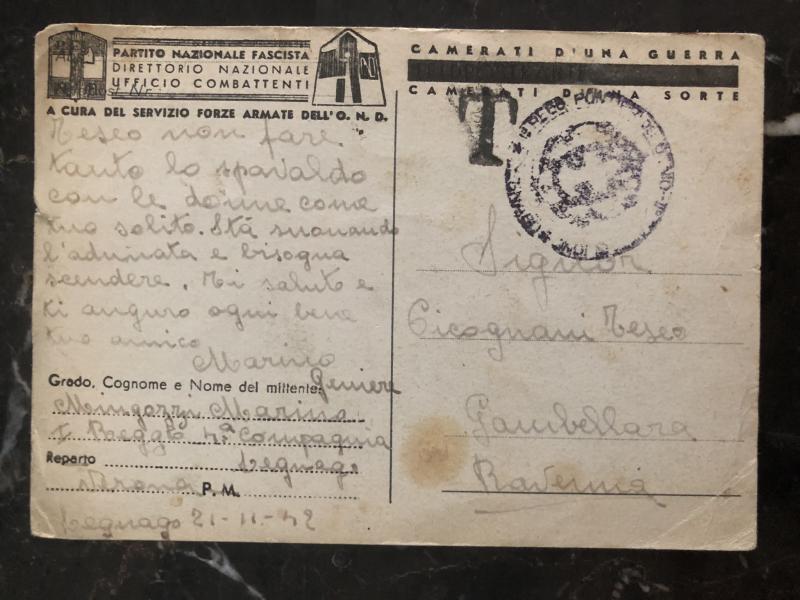 PARTITO NAZIONALE FASCISTA
DIRETTORIO NAZIONALE
UFFICIO COMBATTENTI
A CURA DEL SERVIZIO FORZE ARMATE DELL'O. N. D.
Teseo non fare
tanto lo spavaldo
con le donne come
tuo solito. Stà suonando
l'adunata e bisogna
scendere. Ti saluto e
ti auguro ogni bene
tuo amico
Marino
Grado, Cognome e Nome del mittente: Geniere
Mingozzi Marino
I Reggto 4ª Compagnia
Reparto Legnago
Verona P. M.
Legnago 21-11-42
CAMERATI D'UNA GUERRA
CAMERATI D'UNA SORTE
T
Signor
Cicognani Teseo
Gambellara
Ravenna